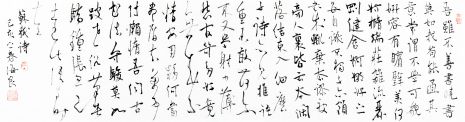 吾雖不善書曉書
莫如我苟能通其
意常謂不學可貌
妍容有顰璧美何
妨橢端莊雜流麗
剛健含婀娜好之
每自譏不謂子亦頗
書成輒棄去謬被旁
人裹體勢本闊
落結束入細麼
子詩亦見推語
重未敢荷邇來
又學射力薄
愁官笴多好竟
無成不精安用夥
何當盡屏去萬事
付懶惰吾聞古
書法守駿莫如
跛世俗筆苦驕
衆中強嵬騀鍾
張忽已遠此語
與時左
蘇軾詩